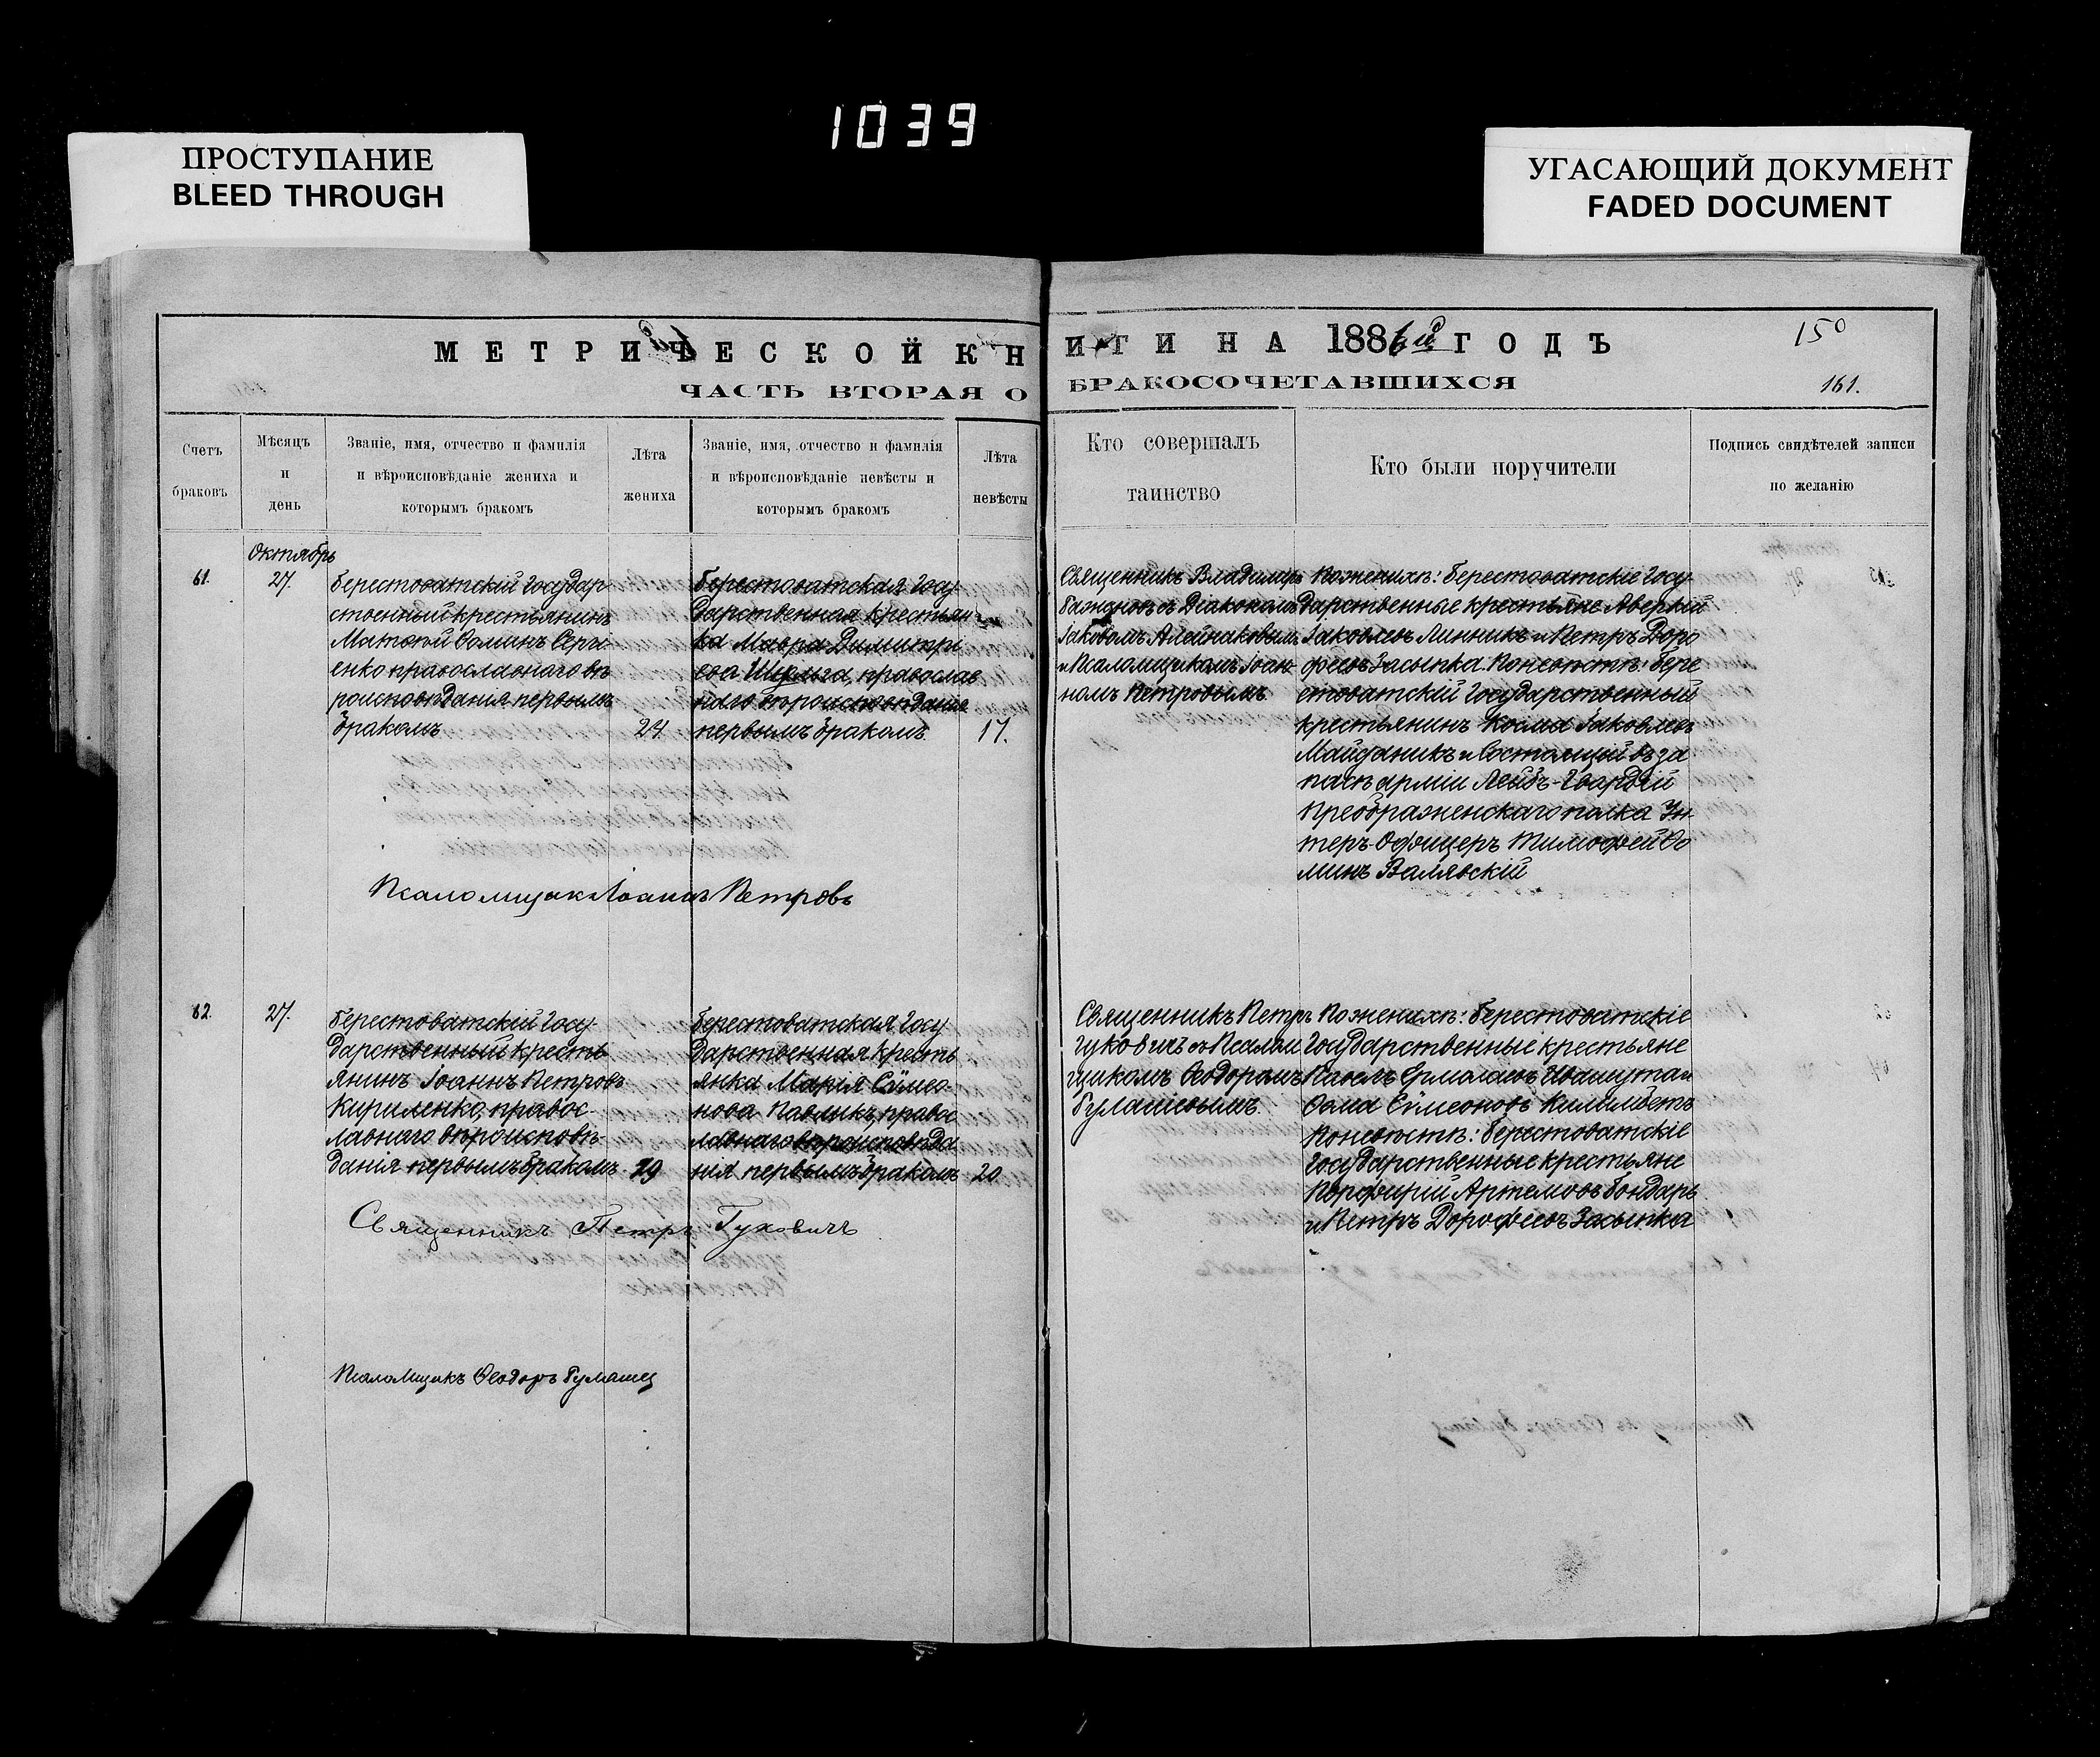 1039
ПРОСТУПАНИЕ
BLEED THROUGH
УГАСАЮЩИЙ ДОКУМЕНТ
FADED DOCUMENT
МЕТРИЧЕСКОЙ КНИГИ НА 1886й ГОДЪ
150
ЧАСТЬ ВТОРАЯ О БРАКОСОЧЕТАВШИХСЯ
161.
Счетъ
браковъ
Мѣсяцъ
и
день
Званіе, имя, отчество и фамилія
и вѣроисповѣданіе жениха и
которымъ бракомъ
Лѣта
жениха
Званіе, имя, отчество и фамилія
и вѣроисповѣданіе невѣсты и
которымъ бракомъ
Лѣта
невѣсты
Кто совершалъ
таинство
Кто были поручители
Подпись свидѣтелей записи
по желанію
61.
Октябрь
27.
Берестоватскій Государ-
ственный крестьянинъ
Матѳей Ѳоминъ Серги-
енко православнаго вѣ
роисповѣданія первымъ
бракомъ
24
Берестоватская Госу-
дарственная крестьян-
ка Мавра Димитрі
ева православ
наго вѣроисповѣданія
первымъ бракомъ
17.
Священникъ Владиміръ
Баженовъ съ Діакономъ
Іаковомъ
и Псаломщикомъ Іоан-
номъ Петровымъ
По женихѣ: Берестоватскіе Госу-
дарственные крестьяне Аверкій
Іаковлевъ Линникъ и Петръ Доро
феевъ Засыпка. По невѣстѣ: Бере
стоватскій Государственный
крестьянинъ Косма Іаковлевъ
Майданикъ и Состоящій въ за
пасѣ арміи Лейбъ-Гвардіи
Преображенскаго полка Ун-
теръ-Офицеръ Тимофей Ѳо
минъ Валявскій
Псаломщикъ Іоаннъ Петровъ
62.
27.
Берестоватскій Госу-
дарственный кресть
янинъ Іоаннъ Петровъ
Кириленко, правос-
лавнаго вѣроисповѣ-
данія первымъ бракомъ
29
Берестоватская Госу
дарственная кресть
янка Марія Сѵмео-
нова Павликъ, правос
лавнаго вѣроисповѣда
нія первымъ бракомъ
20
Священникъ Петръ
Гуковичъ съ Псалом
щикомъ Ѳеодоромъ
По женихѣ: Берестоватскіе
Государственные крестьяне
Павелъ Ермолаевъ
Ѳома Сѵмеоновъ
По невѣстѣ: Берестоватскіе
Государственные крестьяне
Порфирій Артемовъ Бондарь
и Петръ Дорофеевъ Засыпка
Священникъ Петръ Гуковичъ
Псаломщикъ Ѳеодоръ